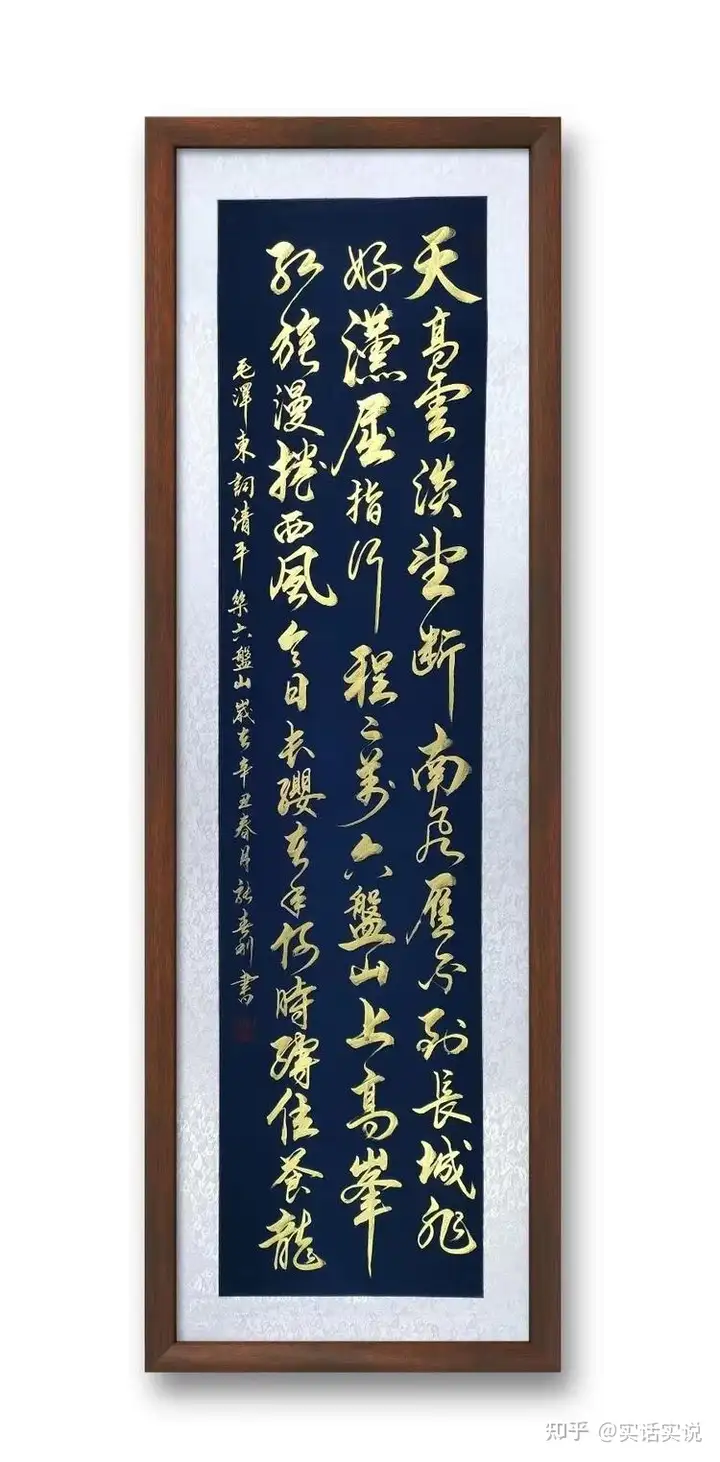 天高雲淡望斷南飛雁不到長城非
好漢屈指行程二萬六盤山上高峯
紅旗漫捲西風今日長纓在手何時縛住蒼龍
毛澤東詞清平樂六盤山歲在辛丑春月書
知乎 @实话实说